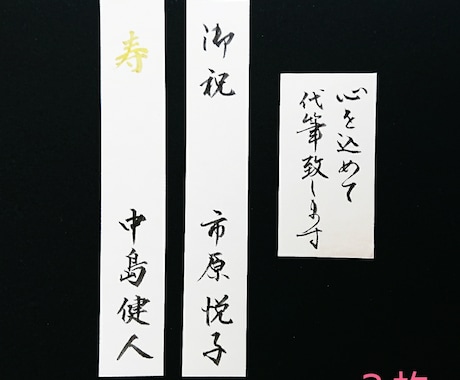 心を込めて
代筆致します
御祝
市原悦子
寿
中島健人